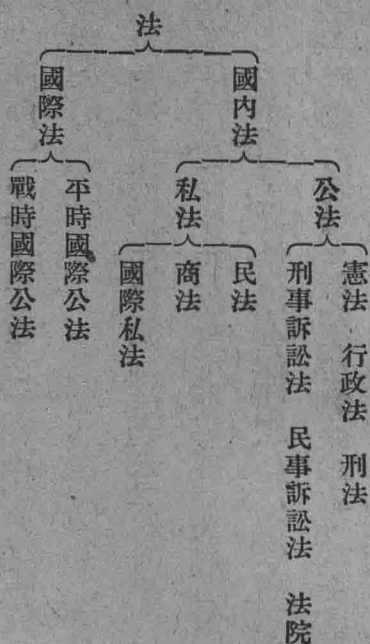 法
國內法
公法
憲法 行政法 刑法
刑事訴訟法 民事訴訟法 法院
私法
民法
商法
國際私法
國際法
平時國際公法
戰時國際公法